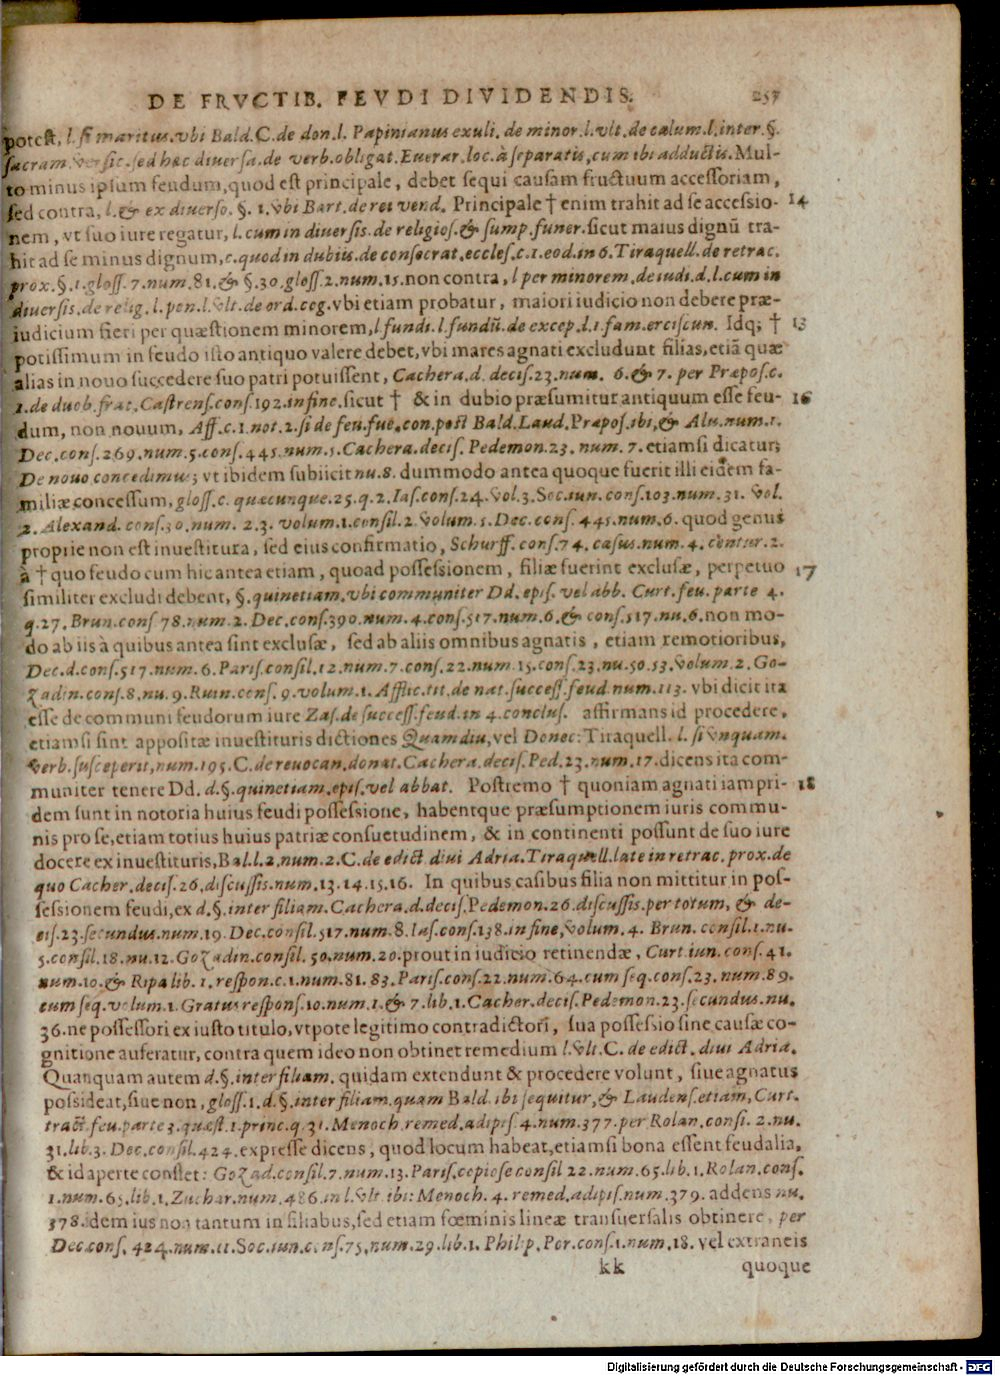 DE FRVCTIB. FEVDI DIVIDENDIS. 257
potest, l. si maritus. vbi Bald. C. de don. l. Papinianus exuli. de minor. l. vlt. de calum. l. inter. §.
sacram. versic. sed hæc diuersa. de verb. obligat. Euerar. loc. à separatis, cum ibi adductis. Mul-
to minus ipsum feudum, quod est principale, debet sequi causam fructuum accessoriam,
sed contra, l. & ex diuerso. §. 1. vbi Bart. de rei vend. Principale † enim trahit ad se accessio- 14
nem, vt suo iure regatur, l. cum in diuersis. de religios. & sump. funer. sicut maius dignū tra-
hit ad se minus dignum, c. quod in dubiis. de consecrat. eccles. c. 1. eod. in 6. Tiraquell. de retrac.
prox. §. 1. gloss. 7. num. 81. & §. 30. gloss. 2. num. 15. non contra, l per minorem. de iudi. d. l. cum in
diuersis. de relig. l. pen. l. vlt. de ord. cog. vbi etiam probatur, maiori iudicio non debere præ-
iudicium fieri per quæstionem minorem, l. fundi. l. fundū. de excep. l. 1 fam. erciscun. Idq; † 15
potissimum in feudo isto antiquo valere debet, vbi mares agnati excludunt filias, etiā quæ
alias in nouo succedere suo patri potuissent, Cachera. d. decis. 23. num. 6. & 7. per Præpos. c.
1. de duob. frat. Castrens. cons. 192. in fine. sicut † & in dubio præsumitur antiquum esse feu- 16
dum, non nouum, Aff. c. 1. not. 2. si de feu. fue. con. post Bald. Laud. Præpos. ibi, & Alu. num. 1.
Dec. cons. 269. num. 5. cons. 445. num. 5. Cachera. decis. Pedemon. 23. num. 7. etiamsi dicatur;
De nouo concedimus; vt ibidem subiicit nu. 8. dummodo antea quoque fuerit illi eidem fa-
miliæ concessum, gloss. c. quæcunque. 25. q. 2. Ias. cons. 24. Vol. 3. Soc. iun. cons. 103. num. 31. Vol.
2. Alexand. cons. 30. num. 2. 3. volum. 1. consil. 2. Volum. 5. Dec. cons. 445. num. 6. quod genus
proprie non est inuestitura, sed eius confirmatio, Schurff. cons. 74. casus. num. 4. centur. 2.
à † quo feudo cum hic antea etiam, quoad possessionem, filiæ fuerint exclusæ, perpetuo 17
similiter excludi debent, §. quinetiam. vbi communiter Dd. epis. vel abb. Curt. feu. parte 4.
q. 27. Brun. cons 78. num. 2. Dec. cons. 390. num. 4. cons. 517. num. 6. & cons. 517. nu. 6. non mo-
do ab iis à quibus antea sint exclusæ, sed ab aliis omnibus agnatis, etiam remotioribus,
Dec. d. cons. 517. num. 6. Paris. consil. 12. num. 7. cons. 22. num. 15. cons. 23. nu. 50. 53. Volum. 2. Go-
zadin. cons. 8. nu. 9. Ruin. cons. 9. volum. 1. Afflic. tit. de nat. success. feud. num. 113. vbi dicit ita
esse de communi feudorum iure Zas. de success. feud. in 4. conclus. affirmans id procedere,
etiamsi sint appositæ inuestituris dictiones Quamdiu, vel Donec: Tiraquell. l. si vnquam.
verb. susceperit, num. 195. C. de reuocan. donat. Cachera. decis. Ped. 23. num. 17. dicens ita com-
muniter tenere Dd. d. §. quinetiam. epis. vel abbat. Postremo † quoniam agnati iampri- 18
dem sunt in notoria huius feudi possessione, habentque præsumptionem iuris commu-
nis pro se, etiam totius huius patriæ consuetudinem, & in continenti possunt de suo iure
docere ex inuestituris, Bal. l. 2. num. 2. C. de edict diui Adria. Tiraquell. late in retrac. prox. de
quo Cacher. decis. 26. discussis. num. 13. 14. 15. 16. In quibus casibus filia non mittitur in pos-
sessionem feudi, ex d. §. inter filiam. Cachera. d. decis. Pedemon. 26. discussis. per totum, & de-
cis. 23. secundus. num. 19. Dec. consil. 517. num. 8. Ias. cons. 138. in fine, volum. 4. Brun. consil. 1. nu.
5. consil. 18. nu. 12. Gozadin. consil. 50. num. 20. prout in iudicio retinendæ, Curt. iun. cons. 41.
num. 10. & Ripa lib. 1. respon. c. 1. num. 81. 83. Paris. cons. 22. num. 64. cum seq. cons. 23. num. 89.
cum seq. volum. 1. Gratus respons. 10. num. 1. & 7. lib. 1. Cacher. decis. Pedemon. 23. secundus. nu.
36. ne possessori ex iusto titulo, vtpote legitimo contradictori, sua possessio sine causæ co-
gnitione auferatur, contra quem ideo non obtinet remedium l. vlt. C. de edict. diui Adria.
Quanquam autem d. §. inter filiam. quidam extendunt & procedere volunt, siue agnatus
possideat, siue non, gloss. 1. d. §. inter filiam. quam Bald. ibi sequitur, & Laudens. etiam, Curt.
tract. feu. parte 3. quæst. 1. princ. q. 31. Menoch. remed. adipis. 4. num. 377. per Rolan. consi. 2. nu.
31. lib. 3. Dec. consil. 424. expresse dicens, quod locum habeat, etiamsi bona essent feudalia,
& id aperte constet: Gozad. consil. 7. num. 13. Paris. copiose consil 22. num. 65. lib. 1. Rolan. cons.
1. num. 65. lib. 1. Zuchar. num. 486. in l. vlt. ibi: Menoch. 4. remed. adipis. num. 379. addens nu.
378. idem ius non tantum in filiabus, sed etiam fœminis lineæ transuersalis obtinere, per
Dec. cons. 424. num. 11. Soc. iun. cons. 75. num. 29. lib. 1. Philip. Por. cons. 1. num. 18. vel extraneis
kk quoque
Digitalisierung gefördert durch die Deutsche Forschungsgemeinschaft - DFG